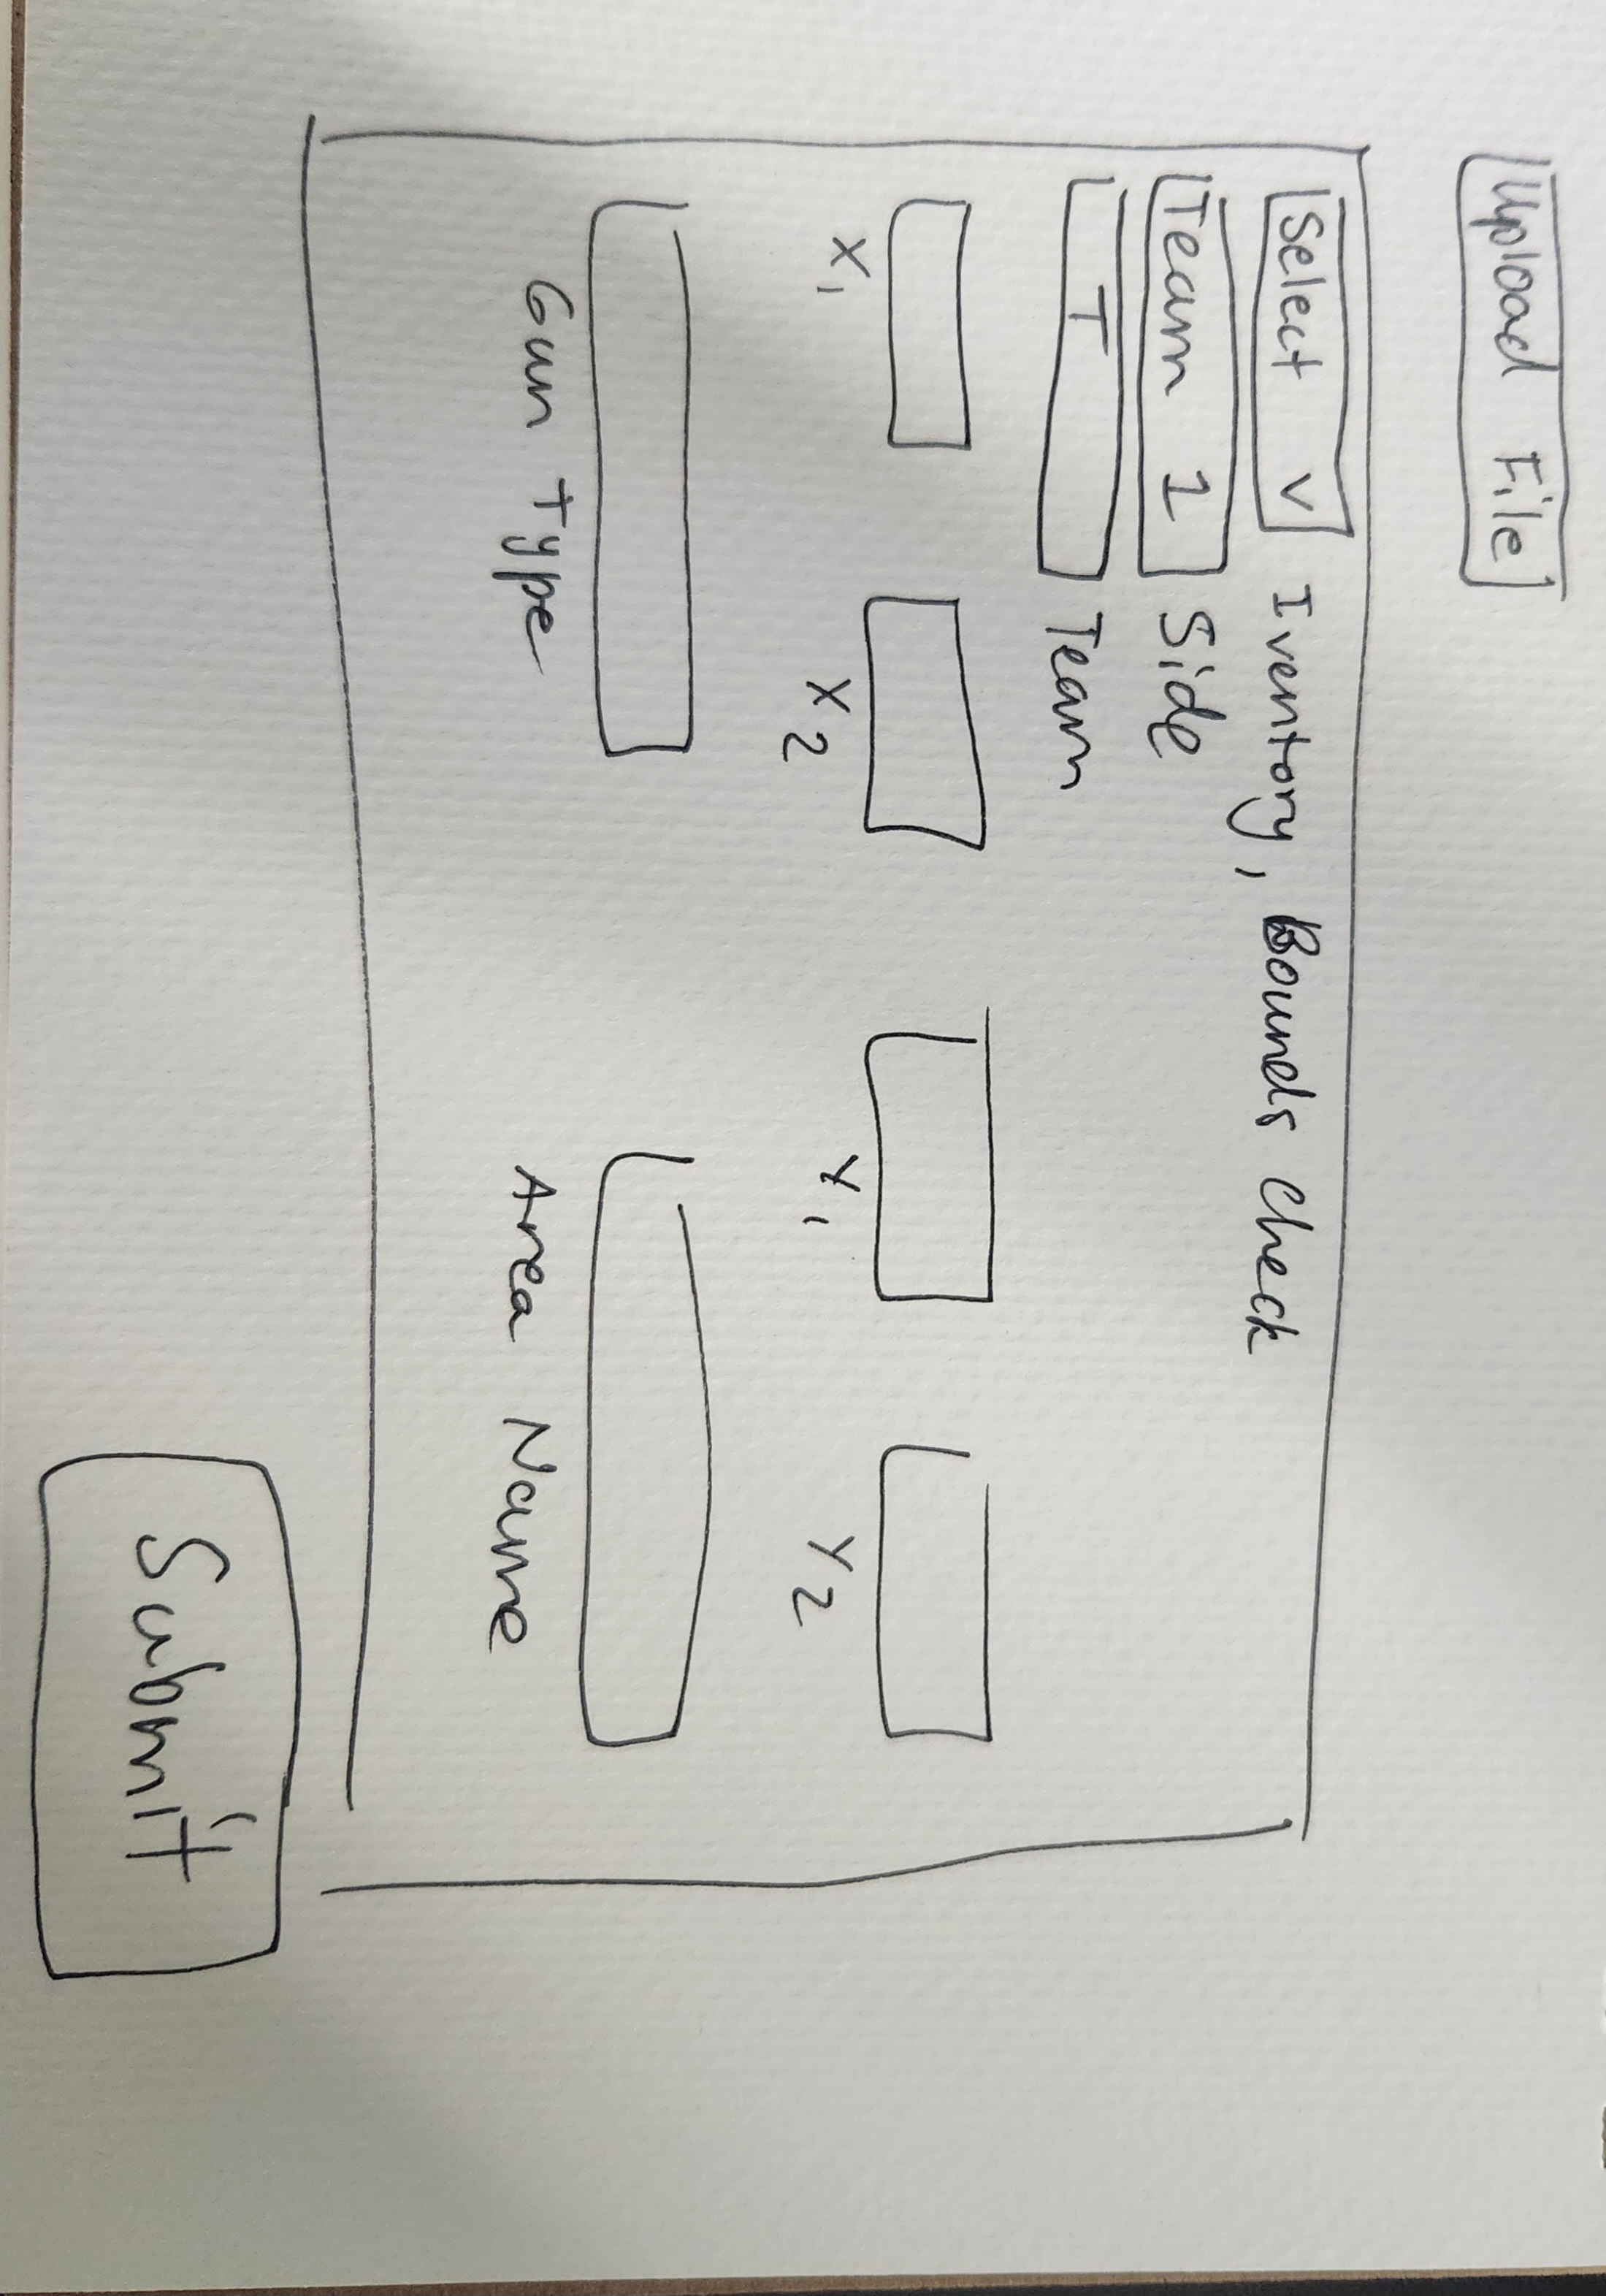 Upload File
Select v Iventory, Bounds Check
Team 1 Side
T Team
X1 X2 Y1 Y2
Gun Type Area Name
Submit